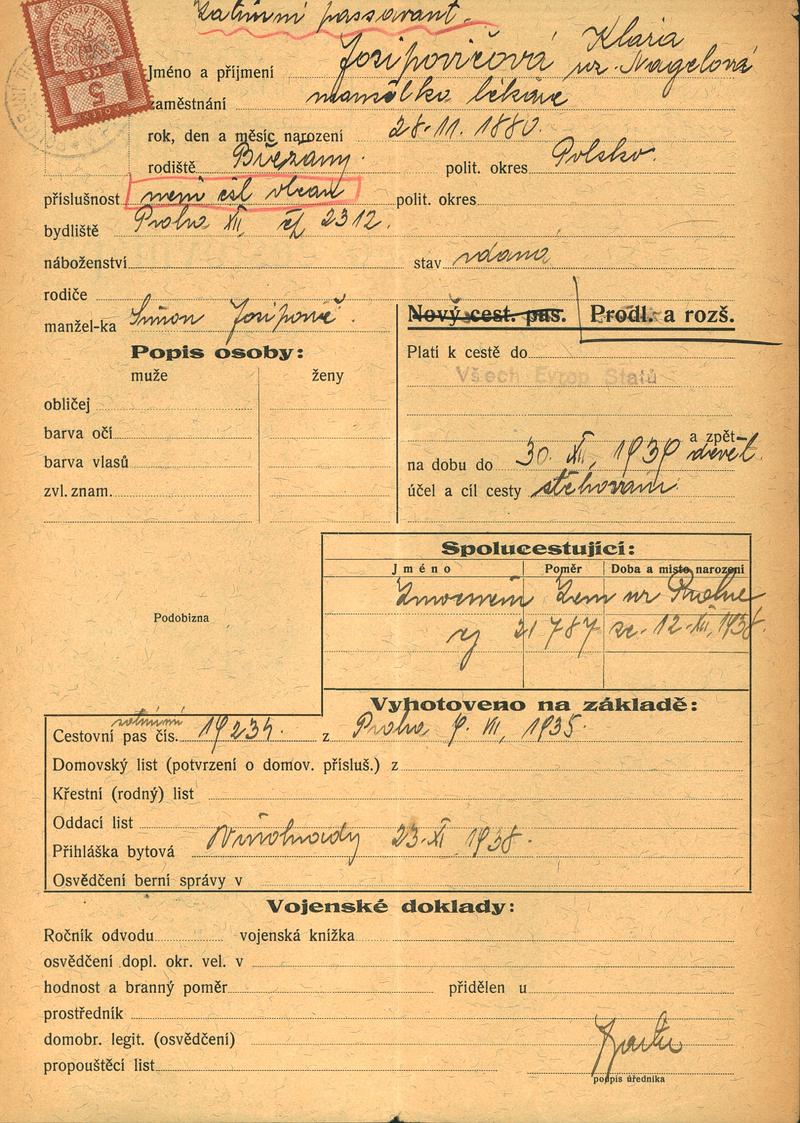 passavant.
5
Kč
Josipovičová Klara
Jméno a příjmení roz. Nagelová
zaměstnání manželka lékaře
rok, den a měsíc narození 28. 11. 1880.
rodiště Břežany. polit. okres Polsko.
příslušnost není čsl občan polit. okres
bydliště Praha XII, čp 2312.
náboženství stav vdaná
rodiče
manžel-ka Simon Josipovič.
Nový cest. pas. Prodl. a rozš.
Popis osoby:
muže ženy
Platí k cestě do
Všech Evrop Států
obličej
barva očí
barva vlasů
zvl. znam.
a zpět
na dobu do 30. XII, 1939 devět
účel a cíl cesty stěhování
Spolucestující:
Jméno Poměr Doba a místo narození
Praha
čj 21787 ze 12. XII, 1938.
Podobizna
Vyhotoveno na základě:
zatimní
Cestovní pas čís. 19234. z Praha 9. VII, 1935.
Domovský list (potvrzení o domov. přísluš.) z
Křestní (rodný) list
Oddací list
Přihláška bytová Vinohrady 23. XI 1938.
Osvědčení berní správy v
Vojenské doklady:
Ročník odvodu vojenská knížka
osvědčení dopl. okr. vel. v
hodnost a branný poměr přidělen u
prostředník
domobr. legit. (osvědčení)
propouštěcí list
podpis úředníka